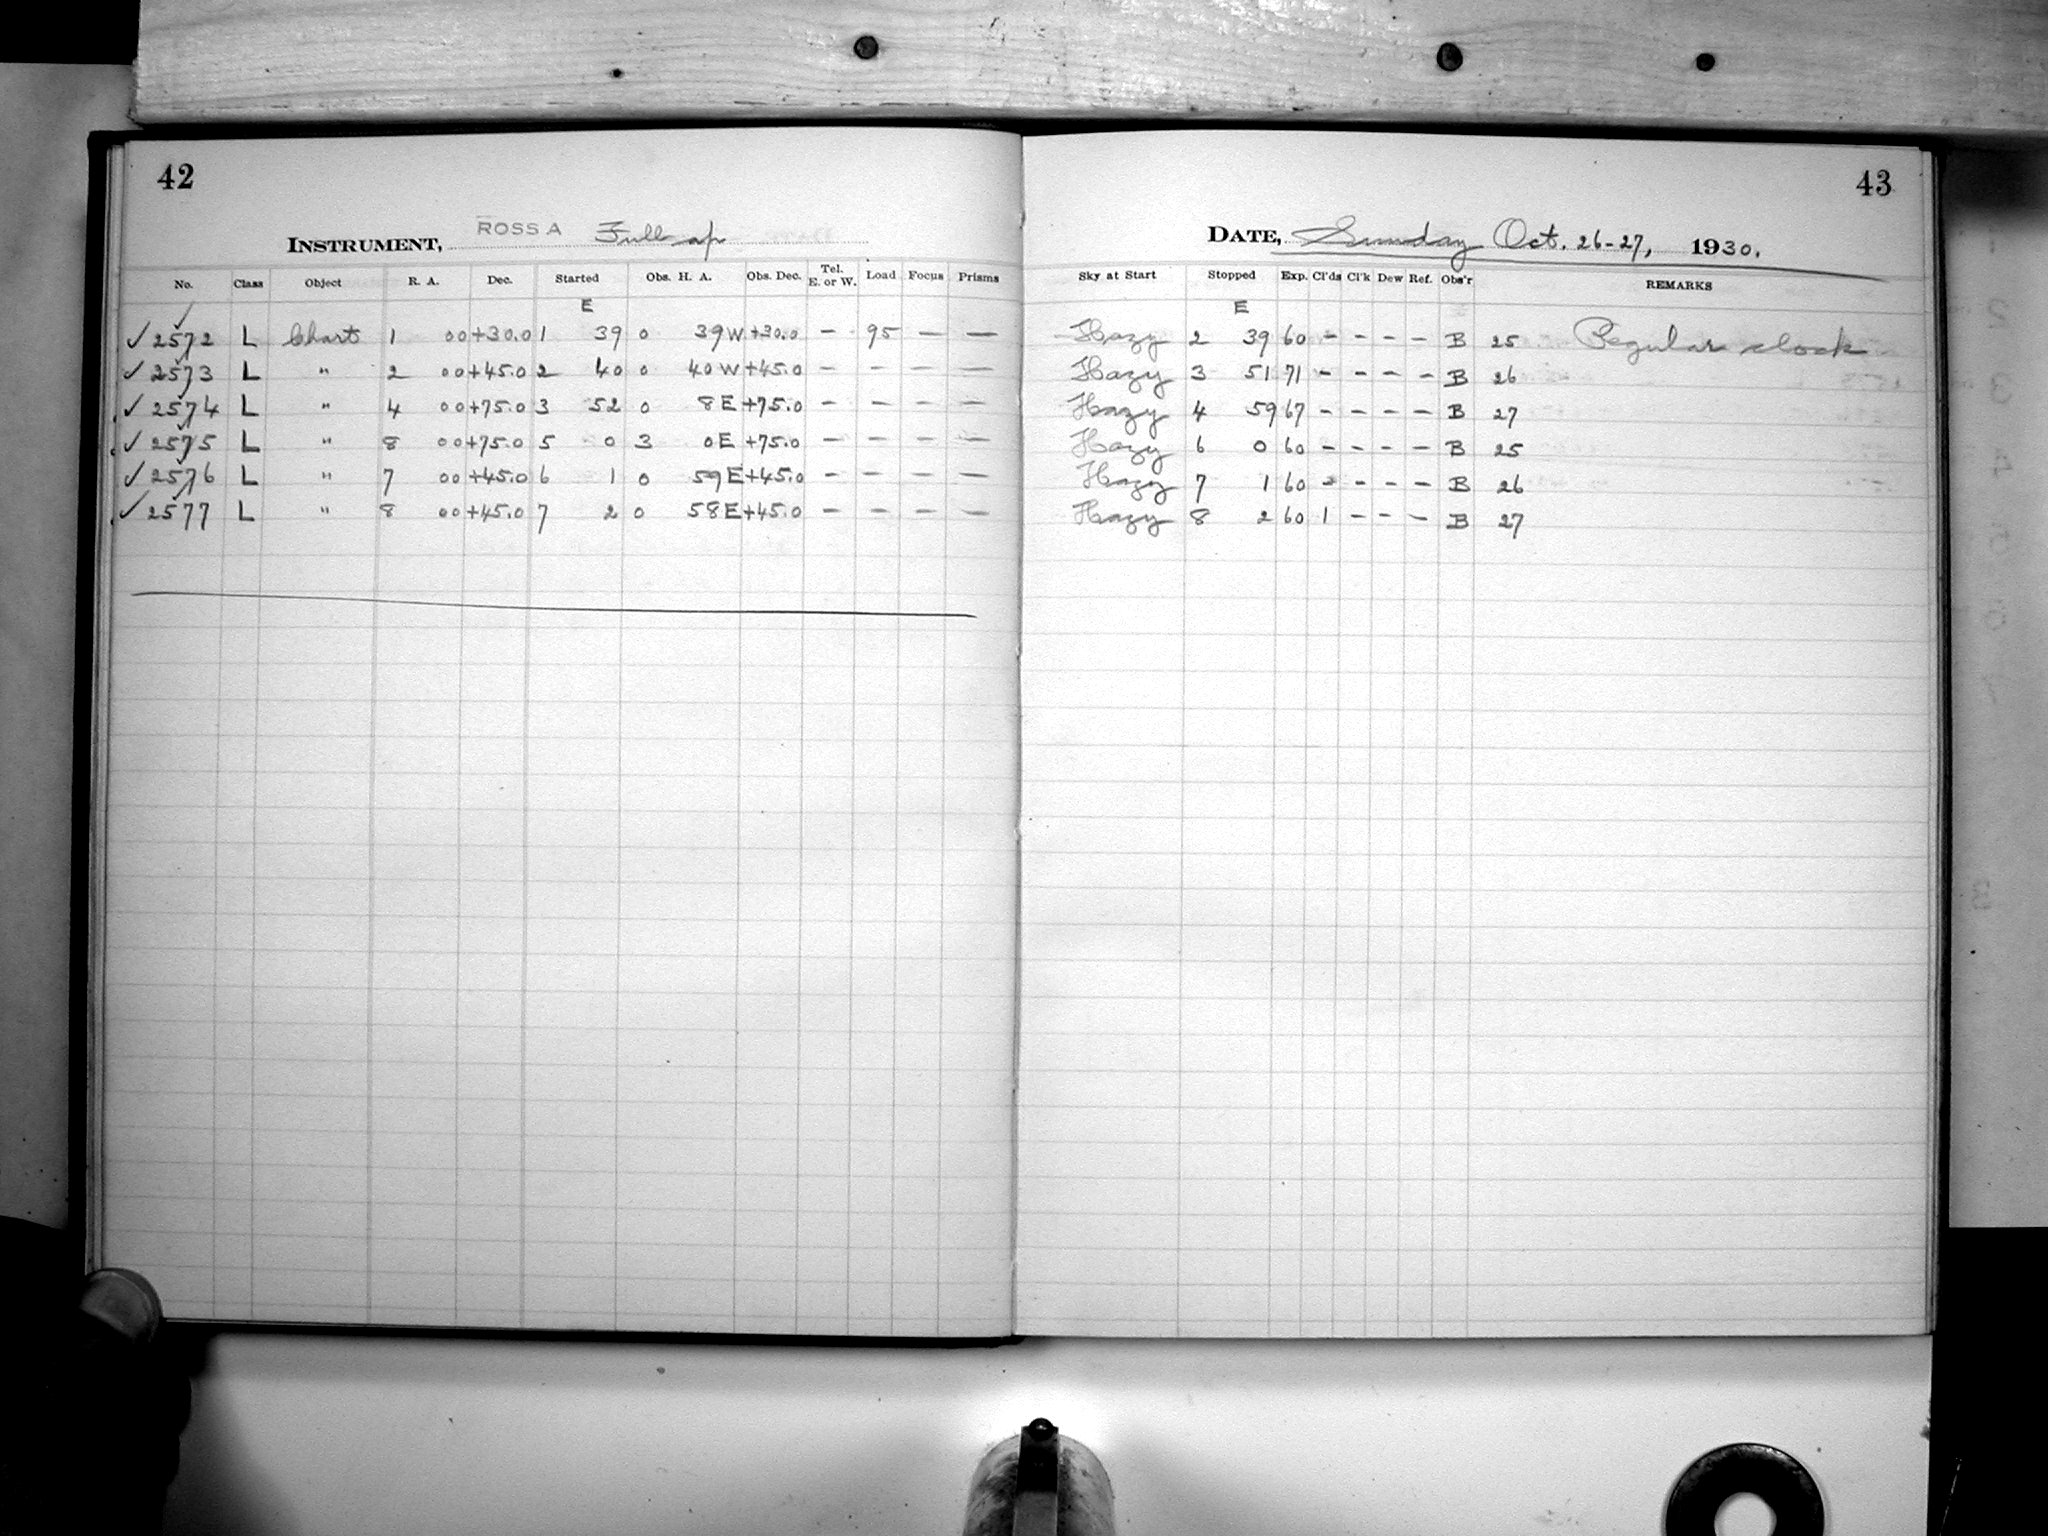 42
INSTRUMENT, ROSS A Full ap
No. Class Object R. A. Dec. Started Obs. H. A. Obs. Dec. Tel. E. or W. Load Focus Prisms
E
✓ 2572 L Chart 1 00 +30.0 1 39 0 39 W +30.0 - 95 - -
✓ 2573 L " 2 00 +45.0 2 40 0 40 W +45.0 - - - -
✓ 2574 L " 4 00 +75.0 3 52 0 8 E +75.0 - - - -
✓ 2575 L " 8 00 +75.0 5 0 3 0 E +75.0 - - - -
✓ 2576 L " 7 00 +45.0 6 1 0 59 E +45.0 - - - -
✓ 2577 L " 8 00 +45.0 7 2 0 58 E +45.0 - - - -
43
DATE, Sunday Oct. 26-27, 1930.
Sky at Start Stopped Exp. Cl'ds Cl'k Dew Ref. Obs'r REMARKS
E
Hazy 2 39 60 - - - - B 25 Regular clock
Hazy 3 51 71 - - - - B 26
Hazy 4 59 67 - - - - B 27
Hazy 6 0 60 - - - - B 25
Hazy 7 1 60 - - - B 26
Hazy 8 2 60 1 - - - B 27